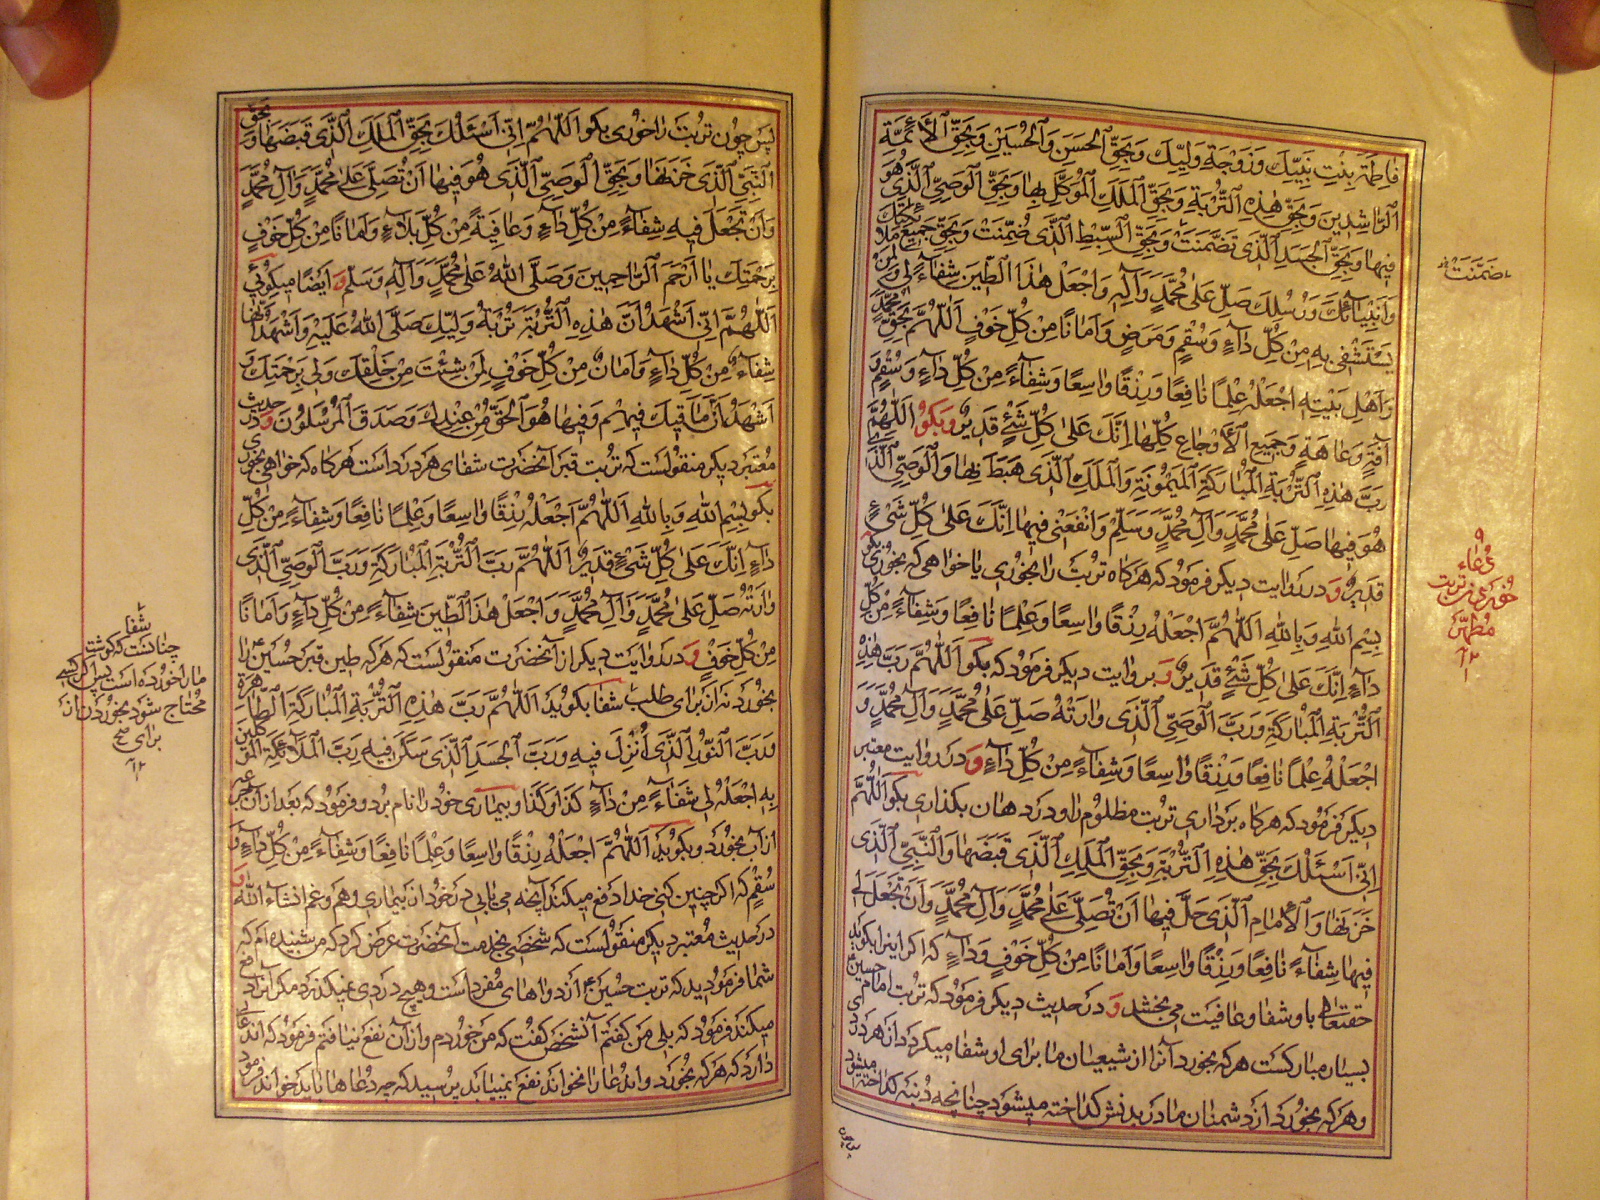 فاطمة بنت نبیک وزوجة ولیک وبحق الحسن والحسین وبحق الأئمة
الراشدین وبحق هذه التربة وبحق الملک الموکل بها وبحق الوصی الذی هو
فیها وبحق الجسد الذی تضمنت وبحق السبط الذی ضمنت وبحق جمیع ملائکتک
وانبیائک ورسلک صل علی محمد وآله واجعل هذا الطین شفاء لی ولمن
یستشفی به من کل داء وسقم ومرض وامانا من کل خوف اللهم بحق محمد
واهل بیته اجعله علما نافعا ورزقا واسعا وشفاء من کل داء وسقم و
آفة وعاهة وجمیع الأوجاع کلها انک علی کل شئ قدیر وبکو اللهم
رب هذه التربة المبارکة المیمونة والملک الذی هبط بها والوصی الذی
هو فیها صل علی محمد وآل محمد وسلم وانفعنی فیها انک علی کل شئ
قدیر و در روایت دیکر فرمود که هرکاه تربت را بخوری یا خواهی که بخوری بکو
بسم الله وبالله اللهم اجعله رزقا واسعا وعلما نافعا وشفاء من کل
داء انک علی کل شئ قدیر و بروایت دیکر فرمود که بکو اللهم رب هذه
التربة المبارکة ورب الوصی الذی وارته صل علی محمد وآل محمد و
اجعله علما نافعا ورزقا واسعا وشفاء من کل داء و در روایت معتبر
دیکر فرمود که هرکاه برداری تربت مظلوم را و در دهان بکذاری بکو اللهم
انی اسئلک بحق هذه التربة وبحق الملک الذی قبضها والنبی الذی
خزنها والامام الذی حل فیها ان تصلی علی محمد وآل محمد وان تجعل لی
فیها شفاء نافعا ورزقا واسعا وامانا من کل خوف وداء که اکر اینرا بکوید
حقتعالی باو شفا و عافیت می بخشد و در حدیث دیکر فرمود که تربت امام حسین
بسیار مبارکست هرکه بخورد آنرا از شیعیان ما برای او شفا میکردد از هر دردی
وهرکه بخورد از دشمنان ما در بدنش کداخته میشود چنانچه دنبه کداخته میشود
پس چون
ضمنت
دعاء
خوردن تربت
مطهر
پس چون تربت را خوری بکو اللهم انی اسئلک بحق الملک الذی قبضها وبحق
النبی الذی خزنها وبحق الوصی الذی هو فیها ان تصلی علی محمد وآل محمد
وان تجعل فیه شفاء من کل داء وعافیة من کل بلاء وامانا من کل خوف
برحمتک یا ارحم الراحمین وصلی الله علی محمد وآله وسلم و ایضا میکوئی
اللهم انی اشهد ان هذه التربة تربة ولیک صلی الله علیه واشهد انها
شفاء من کل داء وامان من کل خوف لمن شئت من خلقک ولی برحمتک و
اشهد ان ما قیل فیهم وفیها هو الحق من عندک وصدق المرسلون و در حدیث
معتبر دیکر منقولست که تربت قبر آنحضرت شفای هر درد است هرکاه که خواهی بخوری
بکو بسم الله وبالله اللهم اجعله رزقا واسعا وعلما نافعا وشفاء من کل
داء انک علی کل شئ قدیر اللهم رب التربة المبارکة ورب الوصی الذی
وارته صل علی محمد وآل محمد واجعل هذا الطین شفاء من کل داء وامانا
من کل خوف و در روایت دیکر از آنحضرت منقولست که هرکه طین قبر حسین را
بخورد نه از برای طلب شفا بکوید اللهم رب هذه التربة المبارکة الطاهرة
ورب النور الذی أنزل فیه ورب الجسد الذی سکن فیه رب الملائکة الموکلین
به اجعله لی شفاء من داء کذا وکذا و بیماری خود را نام برد و فرمود که بعد از آن
از آب بخورد و بکوید اللهم اجعله رزقا واسعا وعلما نافعا وشفاء من کل داء و
سقم که اکر چنین کنی خدا دفع میکند آنچه می یابی در خود از بیماری وهم وغم انشاء الله
در حدیث معتبر دیکر منقولست که شخصی بخدمت آنحضرت عرض کرد که من شنیده ام که
شما فرمودید که تربت حسین از دواهای مفرد است و هیچ دردی نمیکذرد مکر آنرا دفع
میکند فرمود که بلی من کفتم آنشخص کفت که من خوردم و از آن نفع نیافتم فرمود که آن دعائی
دارد که هرکه بخورد و آن دعا را نخواند نفع نمییابد پرسید که چه دعا ها باید خواند فرمود
شفا
چنانست که کوشت
مارا خورده است پس اکر کسی
محتاج شود بخوردن آن
برای